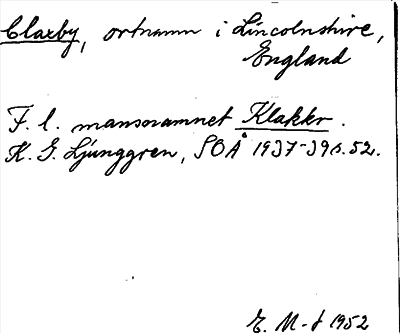 Claxby, ortnamn i Lincolnshire,
England
F. l. mansnamnet Klakkr.
K. G. Ljunggren, SOÅ 1937-39 s. 52.
E. M-t 1952